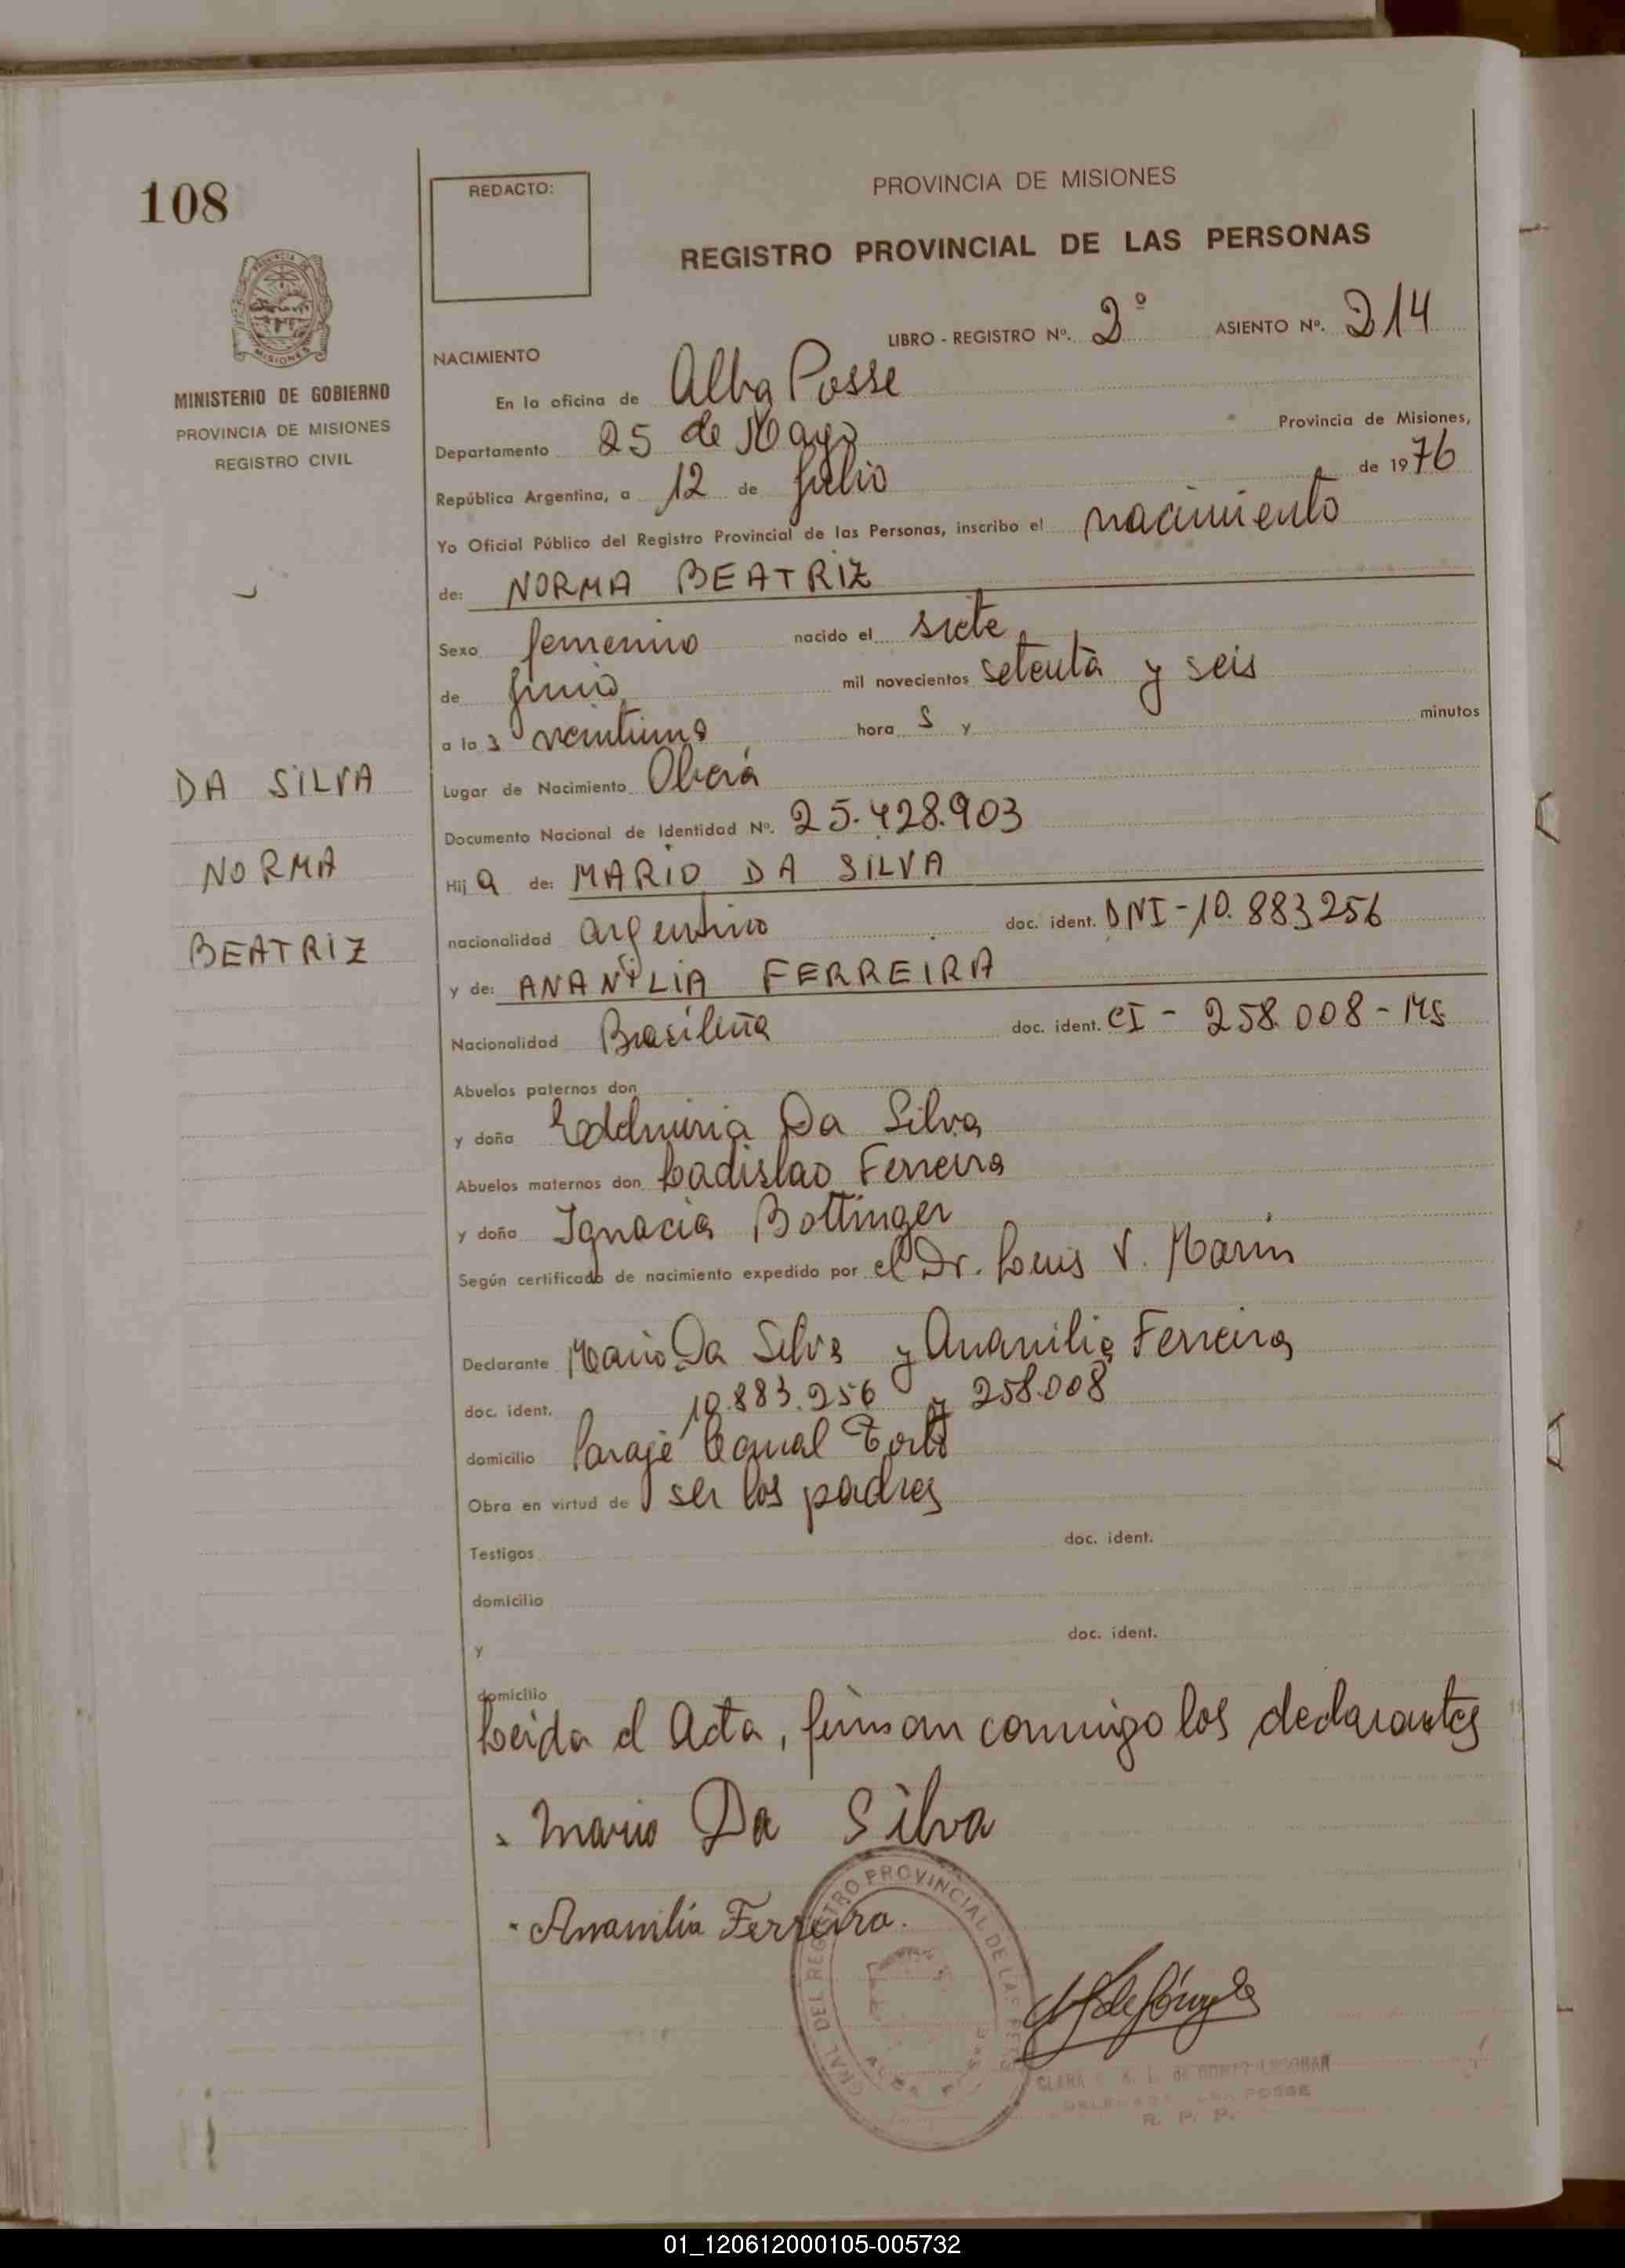 108
REDACTO:
PROVINCIA DE MISIONES
REGISTRO PROVINCIAL DE LAS PERSONAS
MISIONES
MINISTERIO DE GOBIERNO
PROVINCIA DE MISIONES
REGISTRO CIVIL
LIBRO - REGISTRO Nº. 2º ASIENTO Nº. 214
NACIMIENTO
En la oficina de Alba Posse
Departamento 25 de Mayo Provincia de Misiones,
República Argentina, a 12 de Julio de 1976
Yo Oficial Público del Registro Provincial de las Personas, inscribo el nacimiento
de: NORMA BEATRIZ
Sexo femenino nacido el siete
de Junio mil novecientos setenta y seis
a la s veintiuna hora s y minutos
Lugar de Nacimiento Oberá
Documento Nacional de Identidad Nº. 25.428.903
Hij a de: MARIO DA SILVA
nacionalidad argentino doc. ident. DNI-10.883256
y de: ANANILIA FERREIRA
Nacionalidad Brasileña doc. ident. CI - 258.008 - Ms
Abuelos paternos don
y doña Da Silva
Abuelos maternos don Ladislao Ferreira
y doña Ignacia Bottinger
Según certificado de nacimiento expedido por el Dr. Luis V. Marin
Declarante Mario Da Silva y Ananilia Ferreira
doc. ident. 10.883.256 y 258.008
domicilio Paraje Canal Torto
Obra en virtud de ser los padres
Testigos doc. ident.
domicilio
y doc. ident.
domicilio
Leida el Acta, firman conmigo los declarantes
Mario Da Silva
Ananilia Ferreira.
DEL REGISTRO PROVINCIAL DE LAS
ALBA POSSE
CLARA
R. P. P.
DA SILVA
NORMA
BEATRIZ
01_120612000105-005732